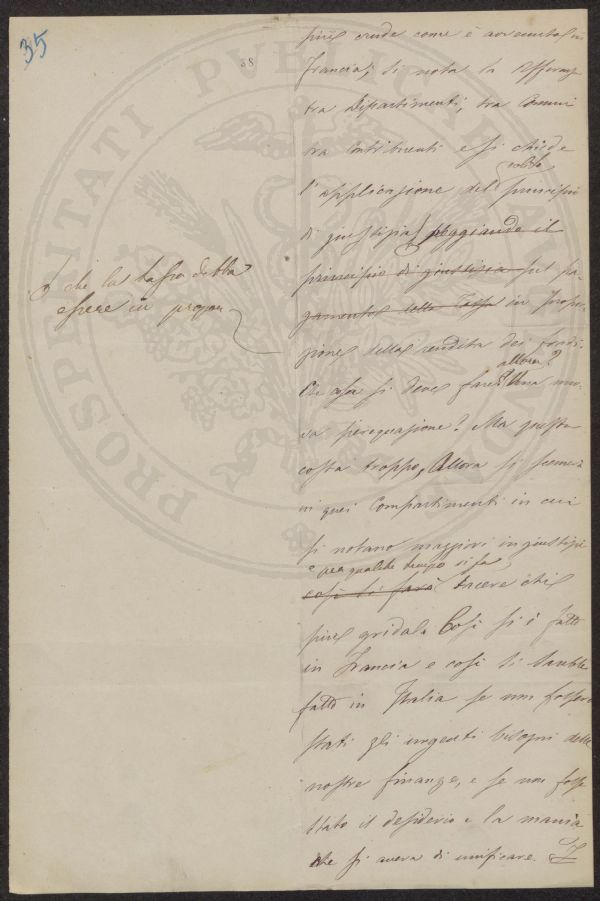 35
38
più crude come è avvenuto in
Francia, si nota la differenza
tra Dipartimenti, tra Comuni
tra Contribuenti e si chiede
solito
l'applicazione del principio
di giustizia poggiando il
principio di giustizia sul pa-
gamento della Tassa in propor-
zione della rendita dei fondi.
allora?
Che cosa si deve fare? Una nuo-
va perequazione? Ma questa
costa troppo, Allora si scemerà
in quei Compartimenti in cui
si notano maggiori ingiustizie
e per qualche tempo si fa
così si farà tacere chi
più grida. Così si è fatto
in Francia e così si sarebbe
fatto in Italia se non fossero
stati gli urgenti bisogni delle
nostre finanze, e se non fosse
stato il desiderio e la mania
che si aveva di unificare.
che la tassa debba
essere in propor
PROSPERITATI PUBLICAE